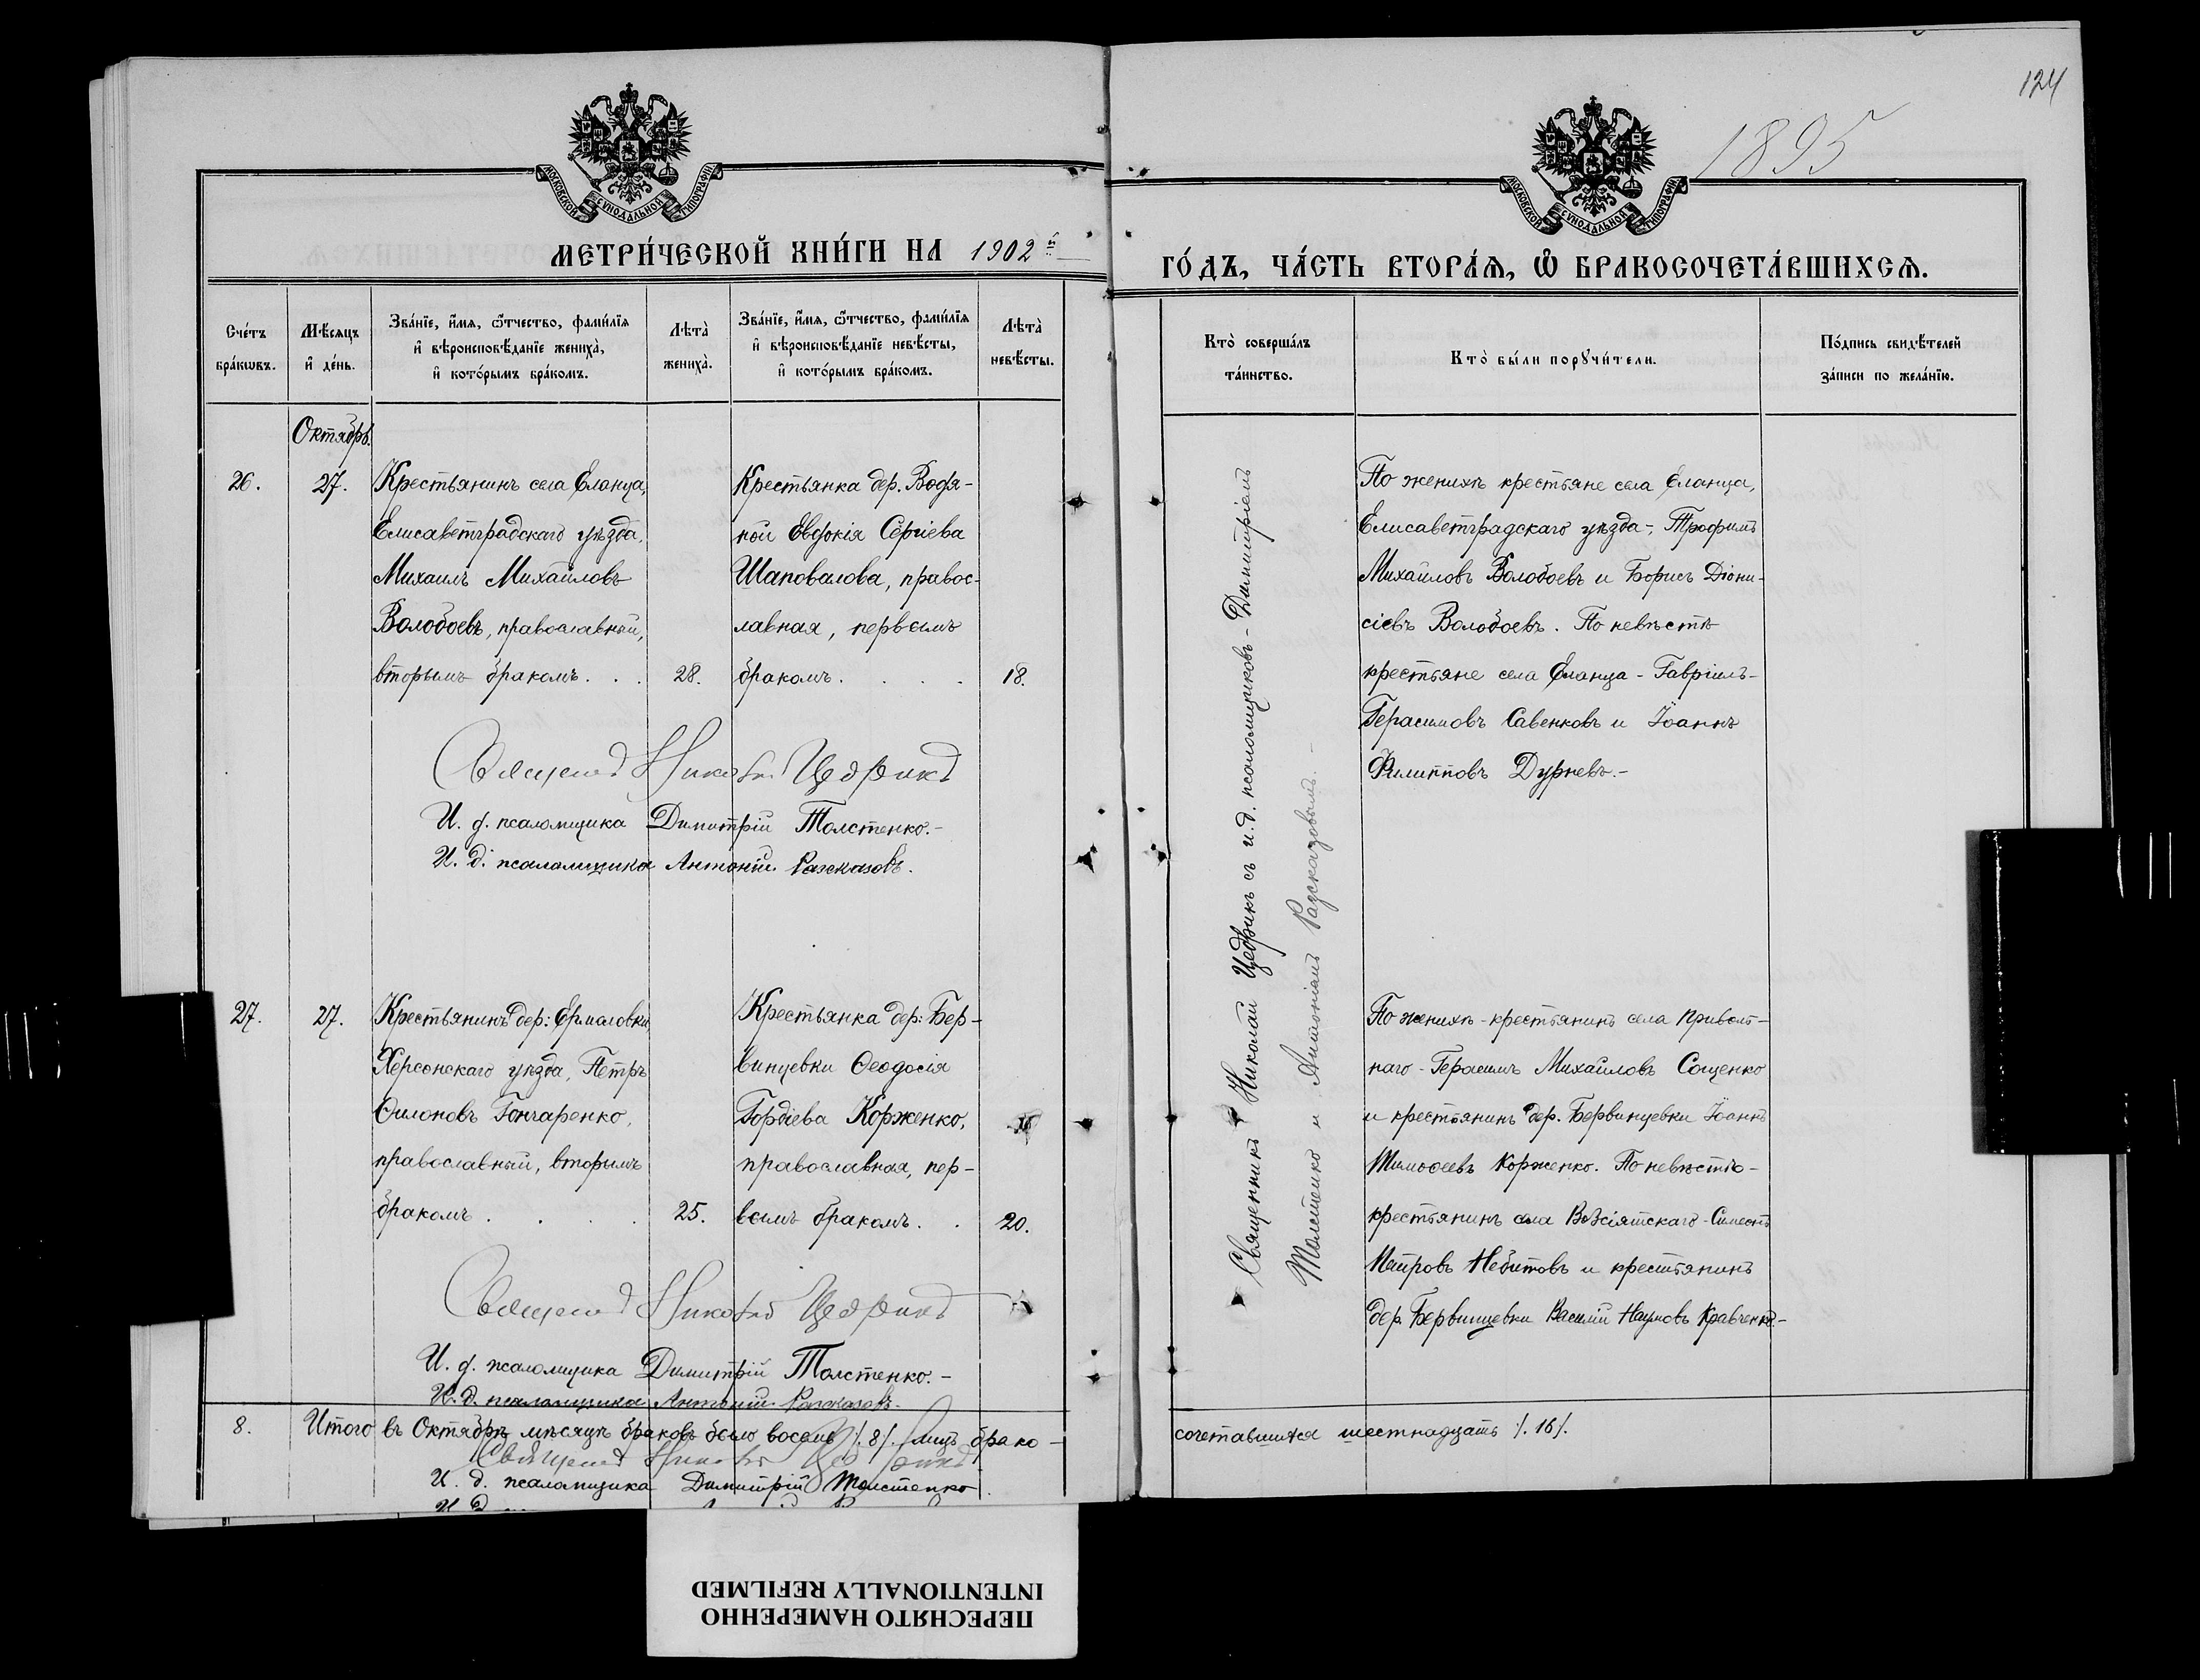 124
1895
МОСКОВСКОЙ СѴНОДАЛЬНОЙ ТИПОГРАФІИ
МОСКОВСКОЙ СѴНОДАЛЬНОЙ ТИПОГРАФІИ
МЕТРИ́ЧЕСКОЙ КНИ́ГИ НА 1902й
ГО́ДЪ, ЧА́СТЬ ВТОРА́Ѧ, Ѽ БРАКОСОЧЕТА́ВШИХСѦ.
Сче́тъ бра́кѡвъ.
Мѣ́сяцъ и҆ де́нь.
Зва́нїе, и҆́мя, ѻ҆́тчество, фами́лїя и҆ вѣроисповѣ́данїе жениха̀, и҆ кото́рымъ бра́комъ.
Лѣта̀ жениха̀.
Зва́нїе, и҆́мя, ѻ҆́тчество, фами́лїя и҆ вѣроисповѣ́данїе невѣ́сты, и҆ кото́рымъ бра́комъ.
Лѣта̀ невѣ́сты.
Кто̀ соверша́лъ та́инство.
Кто̀ бы́ли порꙋчи́тели.
По́дпись свидѣ́телей за́писи по жела́нїю.
Октябрь.
26.
27.
Крестьянинъ села Еланца,
Елисаветградскаго уѣзда,
Михаилъ Михайловъ
Волобоевъ, православный,
вторымъ бракомъ. . .
28.
Крестьянка дер. Водя-
ной Евдокія Сергіева
Шаповалова, правос-
лавная, первымъ
бракомъ. . . .
18.
По женихѣ крестьяне села Еланца,
Елисаветградскаго уѣзда-, Трофимъ
Михайловъ Волобоевъ и Борисъ Діони-
сіевъ Волобоевъ. По невѣстѣ
крестьяне села Еланца - Гавріилъ-
Герасимовъ Савенковъ и Іоаннъ
Филипповъ Дурневъ.-
Священникъ Николай Цедрикъ
И. д. псаломщика Димитрій Толстенко.-
И. д. псаломщика Антоній Разсказовъ.
Священникъ Николай Цедрикъ съ и. д. псаломщиковъ - Димитріемъ
Толстенко и Антоніемъ Разсказовымъ.-
27.
27.
Крестьянинъ дер: Ермаловки,
Херсонскаго уѣзда, Петръ
Ѳилоновъ Гончаренко,
православный, вторымъ
бракомъ . . . .
25.
Крестьянка дер: Бер-
винцевки Ѳеодосія
Гордіева Корженко,
православная, пер-
вымъ бракомъ. .
20.
По женихѣ - крестьянинъ села Приволь-
наго - Герасимъ Михайловъ Сощенко
и крестьянинъ дер. Бервинцевки Іоаннъ
Тимоѳеевъ Корженко. По невѣстѣ-
крестьянинъ села Возсіятскаго - Симеонъ
Небитовъ и крестьянинъ
дер. Бервинцевки Василій Наумовъ Кравченко-
Священникъ Николай Цедрикъ
И. д. псаломщика Димитрій Толстенко.-
И. д. псаломщика Антоній Разсказовъ.
8.
Итого въ Октябрѣ мѣсяцѣ браковъ было восемь /.8/. лицъ брако-
сочетавшихся шестнадцать /.16/.
Священникъ Николай Цедрикъ
И. д. псаломщика Димитрій Толстенко.
И. д.
ПЕРЕСНЯТО НАМЕРЕННО
INTENTIONALLY REFILMED